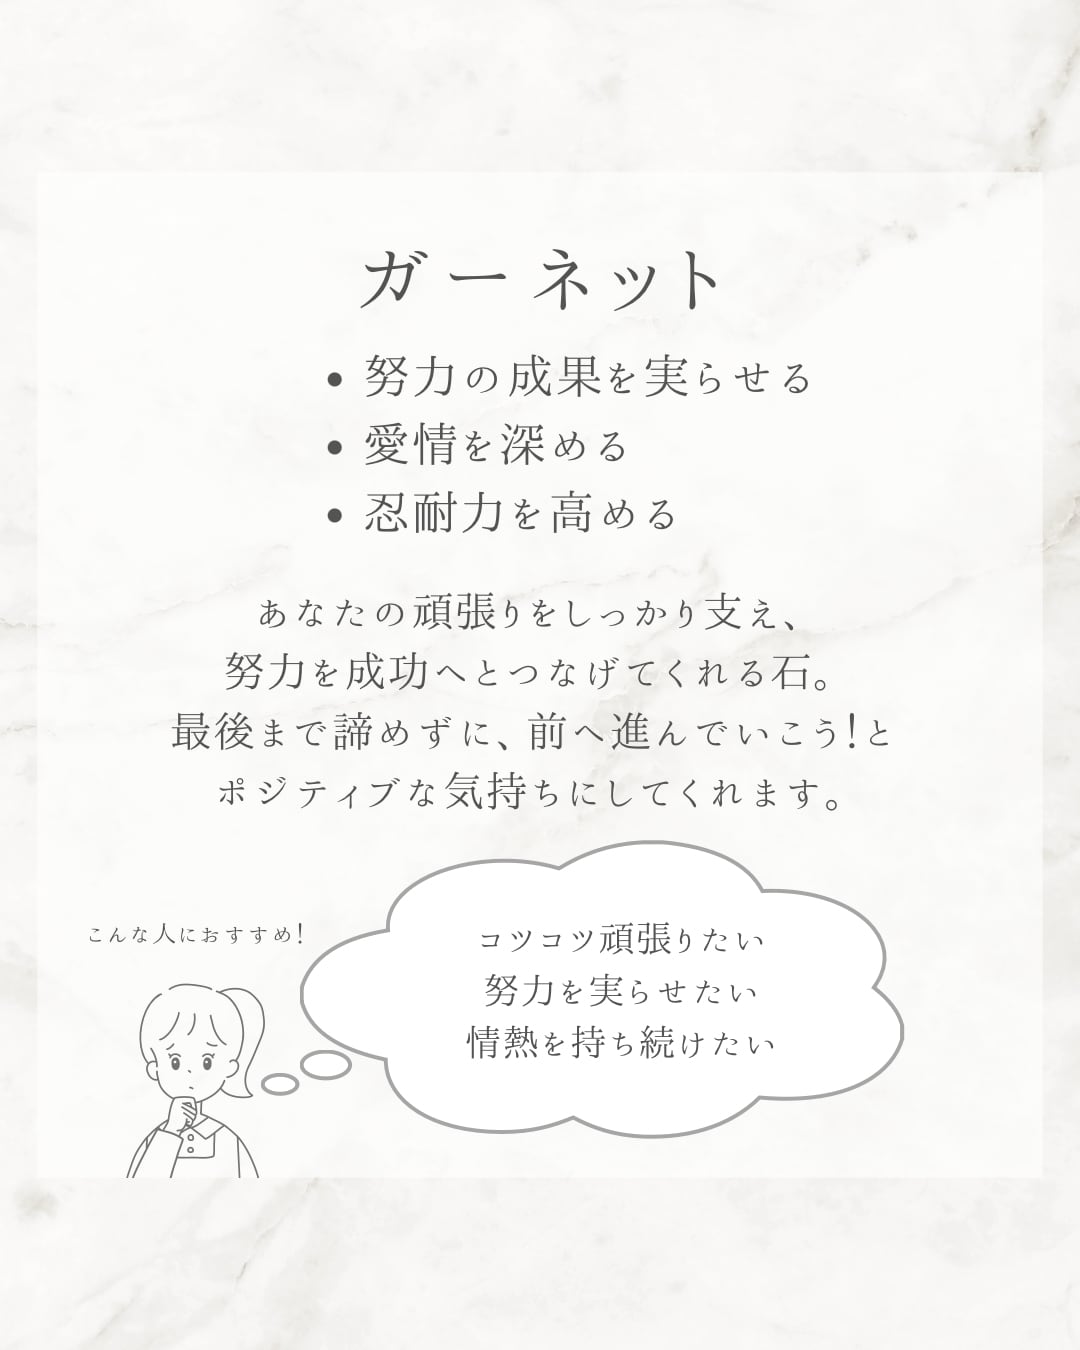 ガーネット
• 努力の成果を実らせる
• 愛情を深める
• 忍耐力を高める
あなたの頑張りをしっかり支え、
努力を成功へとつなげてくれる石。
最後まで諦めずに、前へ進んでいこう!と
ポジティブな気持ちにしてくれます。
こんな人におすすめ!
コツコツ頑張りたい
努力を実らせたい
情熱を持ち続けたい